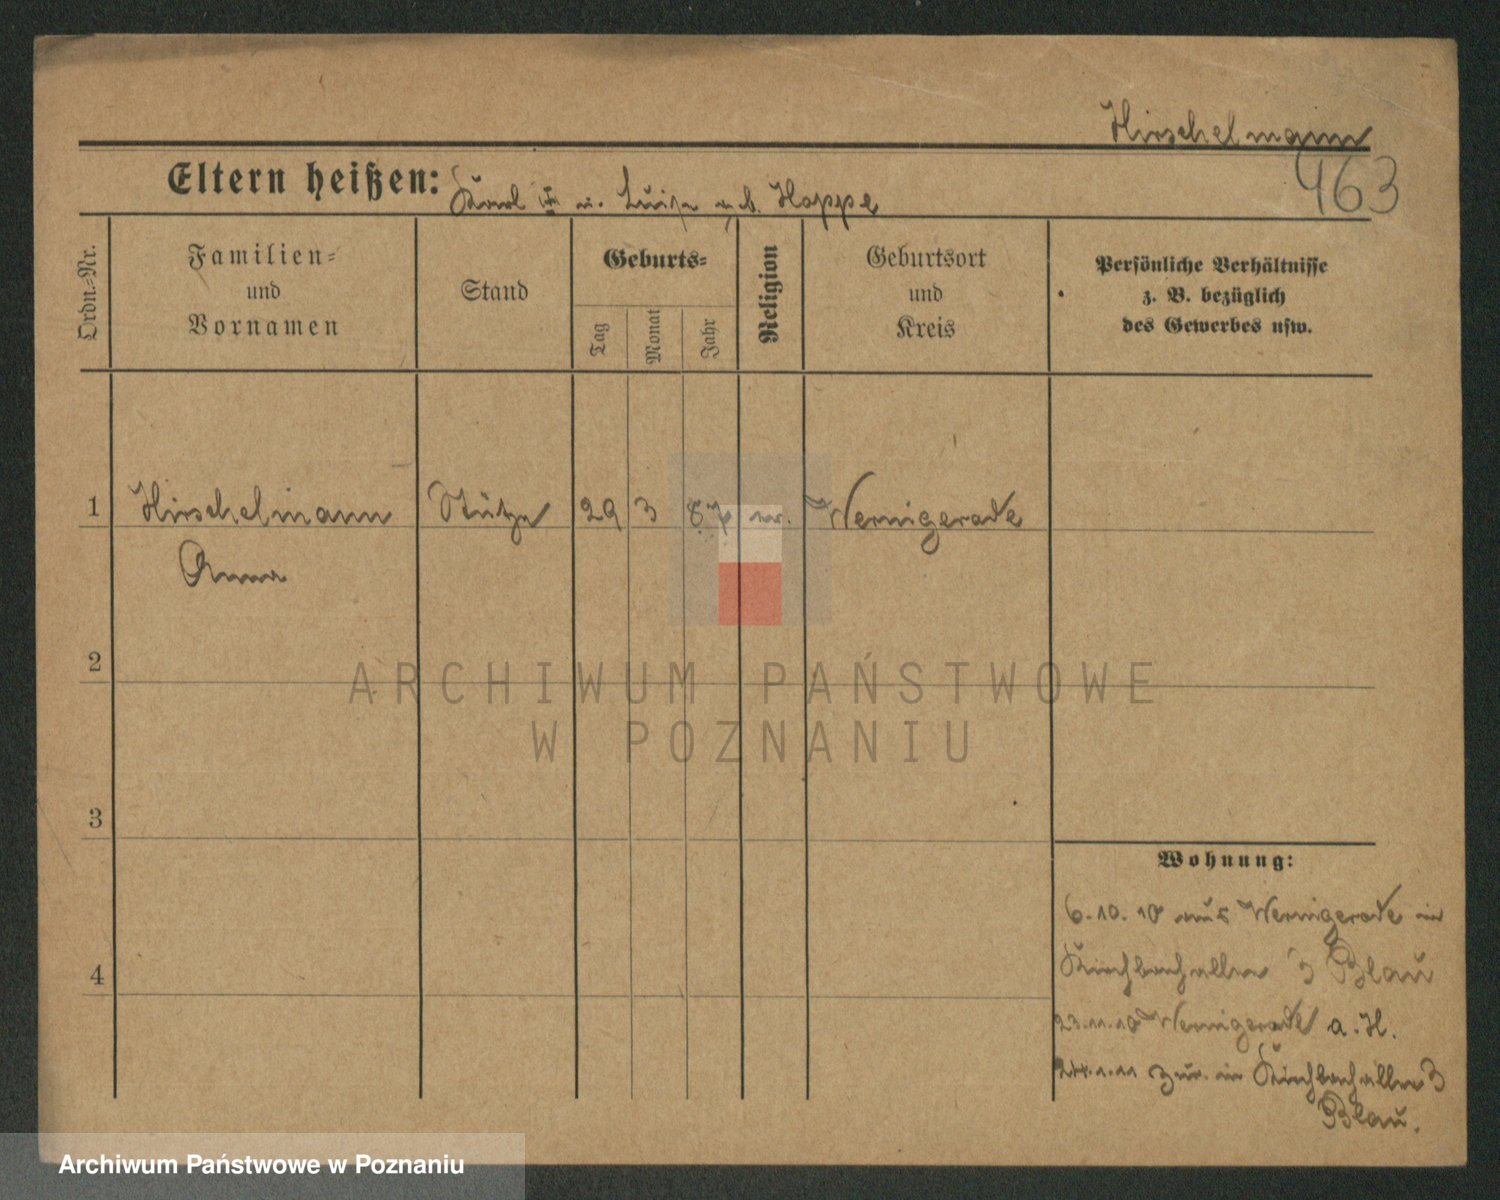 Hirschelmann
463
Eltern heißen: Karl u. Luise geb. Hoppe
Ordn.-Nr.
Familien- und Vornamen
Stand
Geburts-
Tag
Monat
Jahr
Religion
Geburtsort und Kreis
Persönliche Verhältnisse
z. B. bezüglich
des Gewerbes usw.
1 Hirschelmann Stütze 29 3 87 Wernigerode
Anna
2
ARCHIWUM PAŃSTWOWE
W POZNANIU
3
Wohnung:
6.10.10 aus Wernigerode in
Kirchbachallee 3 Blau
4
23.11.10 Wernigerode a. H.
24.1.11 zur. in Kirchbachallee 3
Blau.
Archiwum Państwowe w Poznaniu